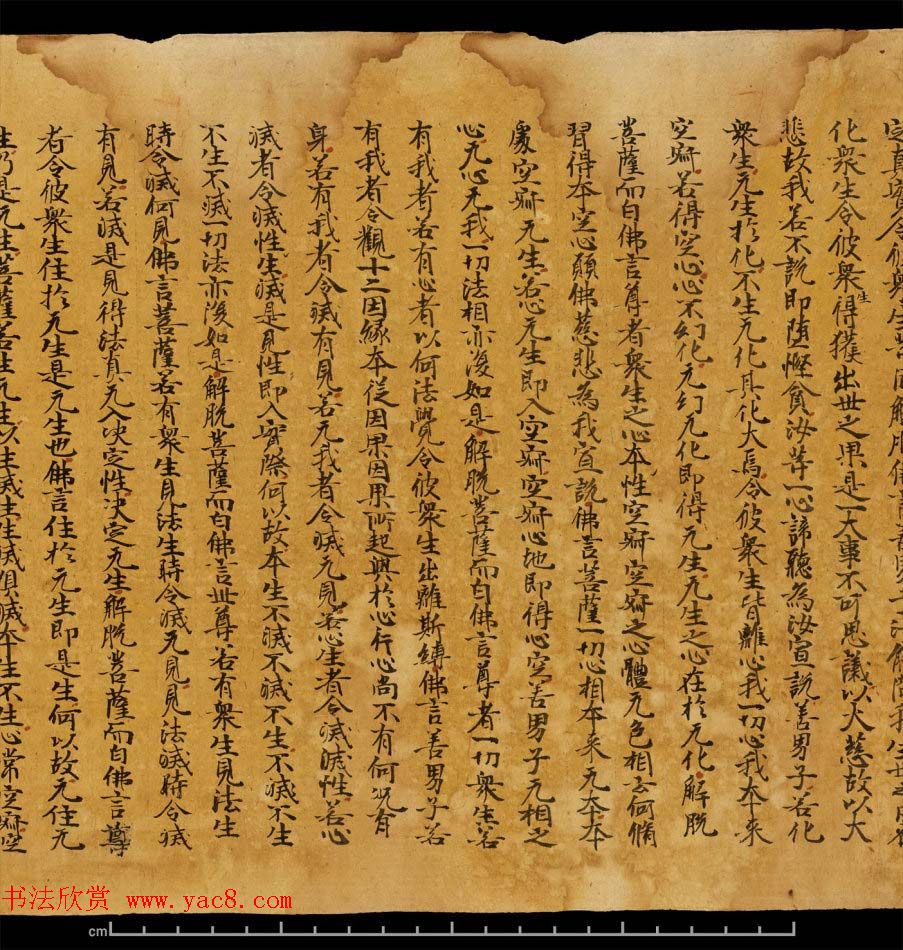 化衆生令彼衆生得獲出世之果是一大事不可思議以大慈故以大
悲故我若不說即墮慳貪汝等一心諦聽為汝宣說善男子若化
衆生无生於化不生无化其化大焉令彼衆生皆離心我一切心我本来
空寂若得空心心不幻化无幻无化即得无生无生之心在於无化解脫
菩薩而白佛言尊者衆生之心本性空寂空寂之心體无色相云何脩
習得本空心願佛慈悲為我宣說佛言菩薩一切心相本来无本本
處空寂无生若心无生即入空寂空寂心地即得心空善男子无相之
心无心无我一切法相亦復如是解脫菩薩而白佛言尊者一切衆生若
有我者若有心者以何法覺令彼衆生出離斯縛佛言善男子若
有我者令觀十二因緣本從因果因果所起興於心行心尚不有何況有
身若有我者令滅有見若无我者令滅无見若心生者令滅滅性若心
滅者令滅性生滅是見性即入實際何以故本生不滅不滅不生不滅不生
不生不滅一切法亦復如是解脫菩薩而白佛言世尊若有衆生見法生
時令滅何見佛言菩薩若有衆生見法生時令滅无見見法滅時令滅
有見若滅是見得法真无入决定性决定无生解脫菩薩而白佛言尊
者令彼衆生住於无生是无生也佛言住於无生即是生何以故无住无
生乃是无生菩薩若生无生以生滅生生滅俱滅本生不生心常空寂空
书法欣赏 www.yac8.com
cm